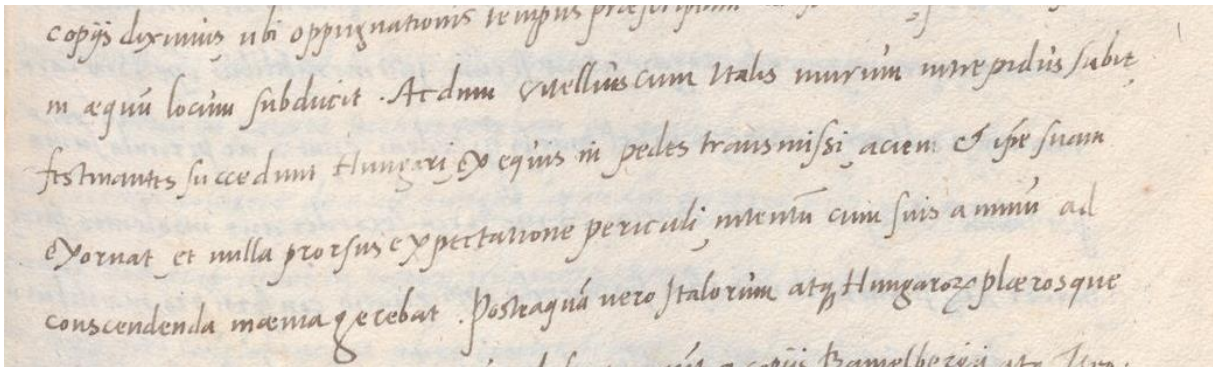 copijs diximus, ubi oppugnationis tempus præscriptum
in æquũ locum subducit. Ac dum Vitellius cum Italis murum intrepidus subit,
festinantes succedunt Hungari, ex equis in pedes transmissi, aciem & ipse suam
exornat, et nulla prorsus expectatione periculi, intentũ cum suis animũ ad
conscendenda mænia gerebat. Posteaquã vero Italorum atq Hungaroꝝ plærosque
a copijs Bamelbergij atq